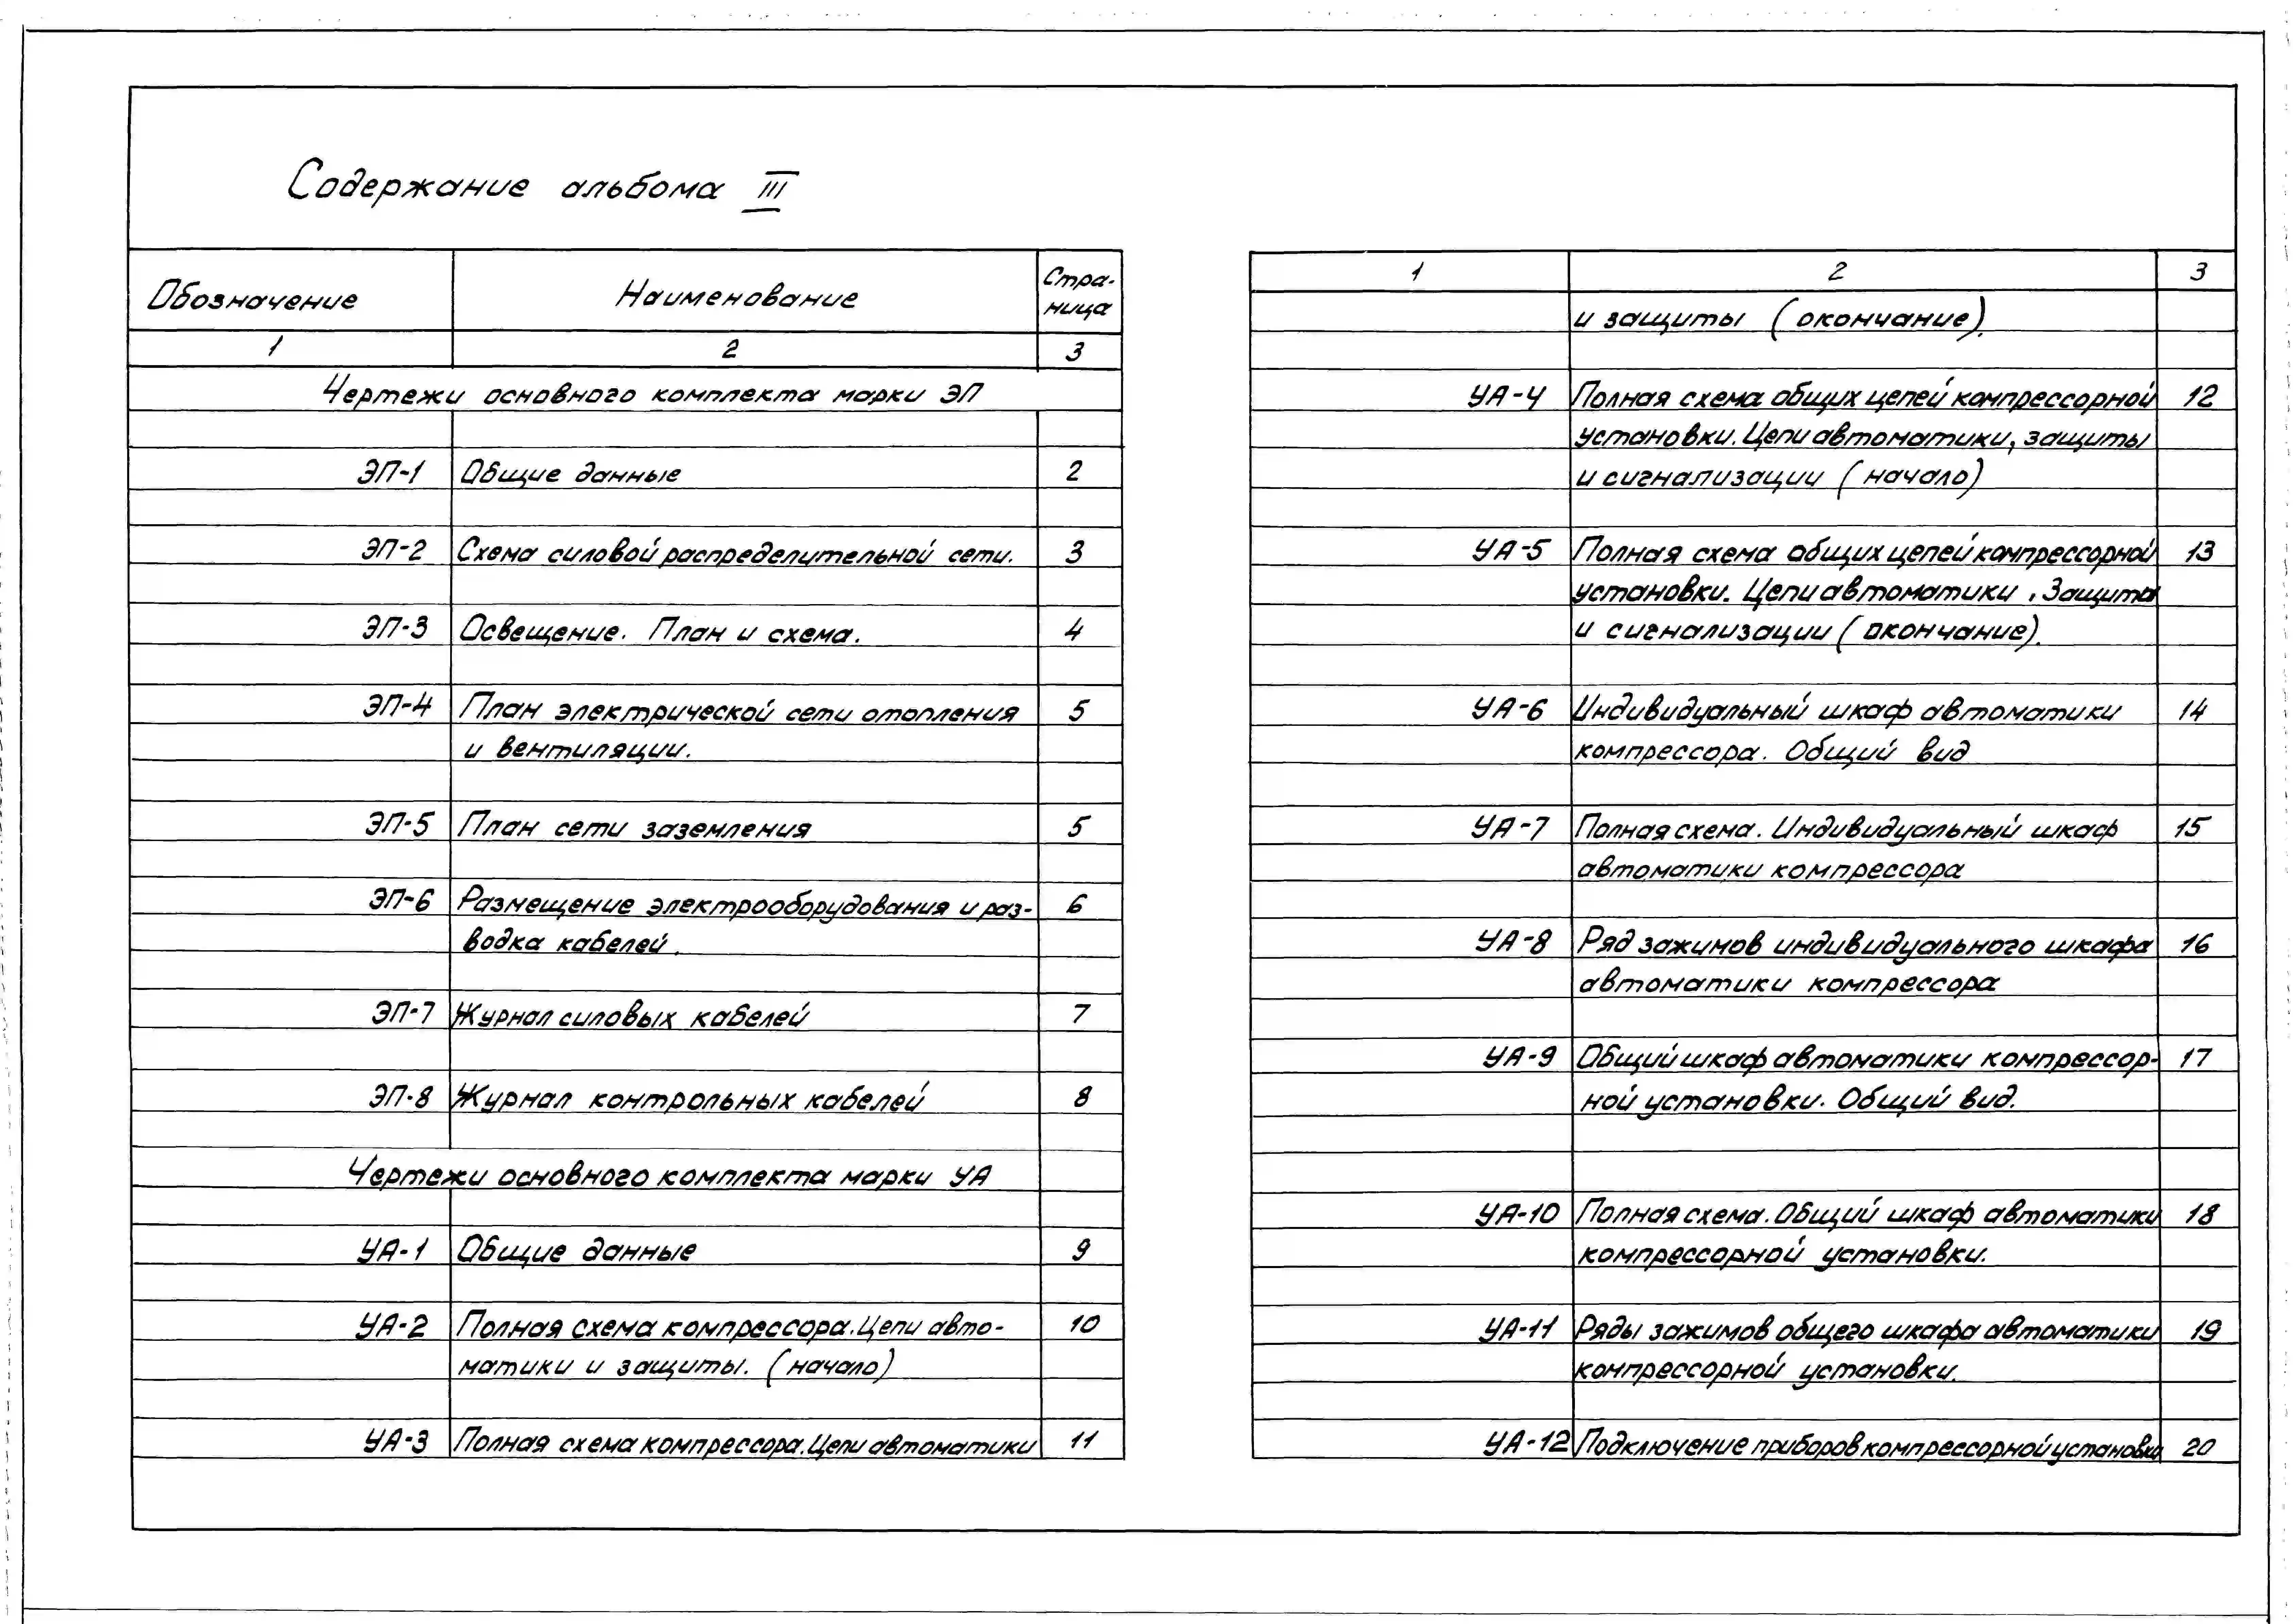 Содержание альбома III
Обозначение Наименование Стра-
ница
1 2 3
Чертежи основного комплекта марки ЭП
ЭП-1 Общие данные 2
ЭП-2 Схема силовой распределительной сети. 3
ЭП-3 Освещение. План и схема. 4
ЭП-4 План электрической сети отопления 5
и вентиляции.
ЭП-5 План сети заземления 5
ЭП-6 Размещение электрооборудования и раз- 6
водка кабелей.
ЭП-7 Журнал силовых кабелей 7
ЭП-8 Журнал контрольных кабелей 8
Чертежи основного комплекта марки УА
УА-1 Общие данные 9
УА-2 Полная схема компрессора. Цепи авто- 10
матики и защиты. (начало)
УА-3 Полная схема компрессора. Цепи автоматики 11
1 2 3
и защиты (окончание).
УА-4 Полная схема общих цепей компрессорной 12
установки. Цепи автоматики, защиты
и сигнализации (начало)
УА-5 Полная схема общих цепей компрессорной 13
установки. Цепи автоматики, Защита
и сигнализации (окончание).
УА-6 Индивидуальный шкаф автоматики 14
компрессора. Общий вид
УА-7 Полная схема. Индивидуальный шкаф 15
автоматики компрессора
УА-8 Ряд зажимов индивидуального шкафа 16
автоматики компрессора
УА-9 Общий шкаф автоматики компрессор- 17
ной установки. Общий вид.
УА-10 Полная схема. Общий шкаф автоматики 18
компрессорной установки.
УА-11 Ряды зажимов общего шкафа автоматики 19
компрессорной установки.
УА-12 Подключение приборов компрессорной установки 20